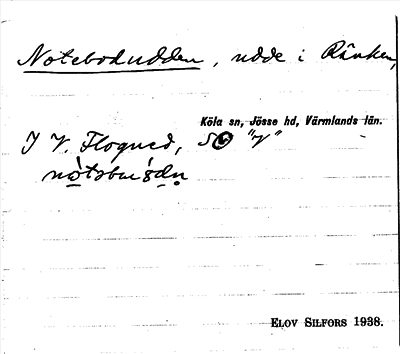 Notebodudden, udde i Ränken,
Köla sn, Jösse hd, Värmlands län.
I V. Flogned, SO "V"
ELOV SILFORS 1938.